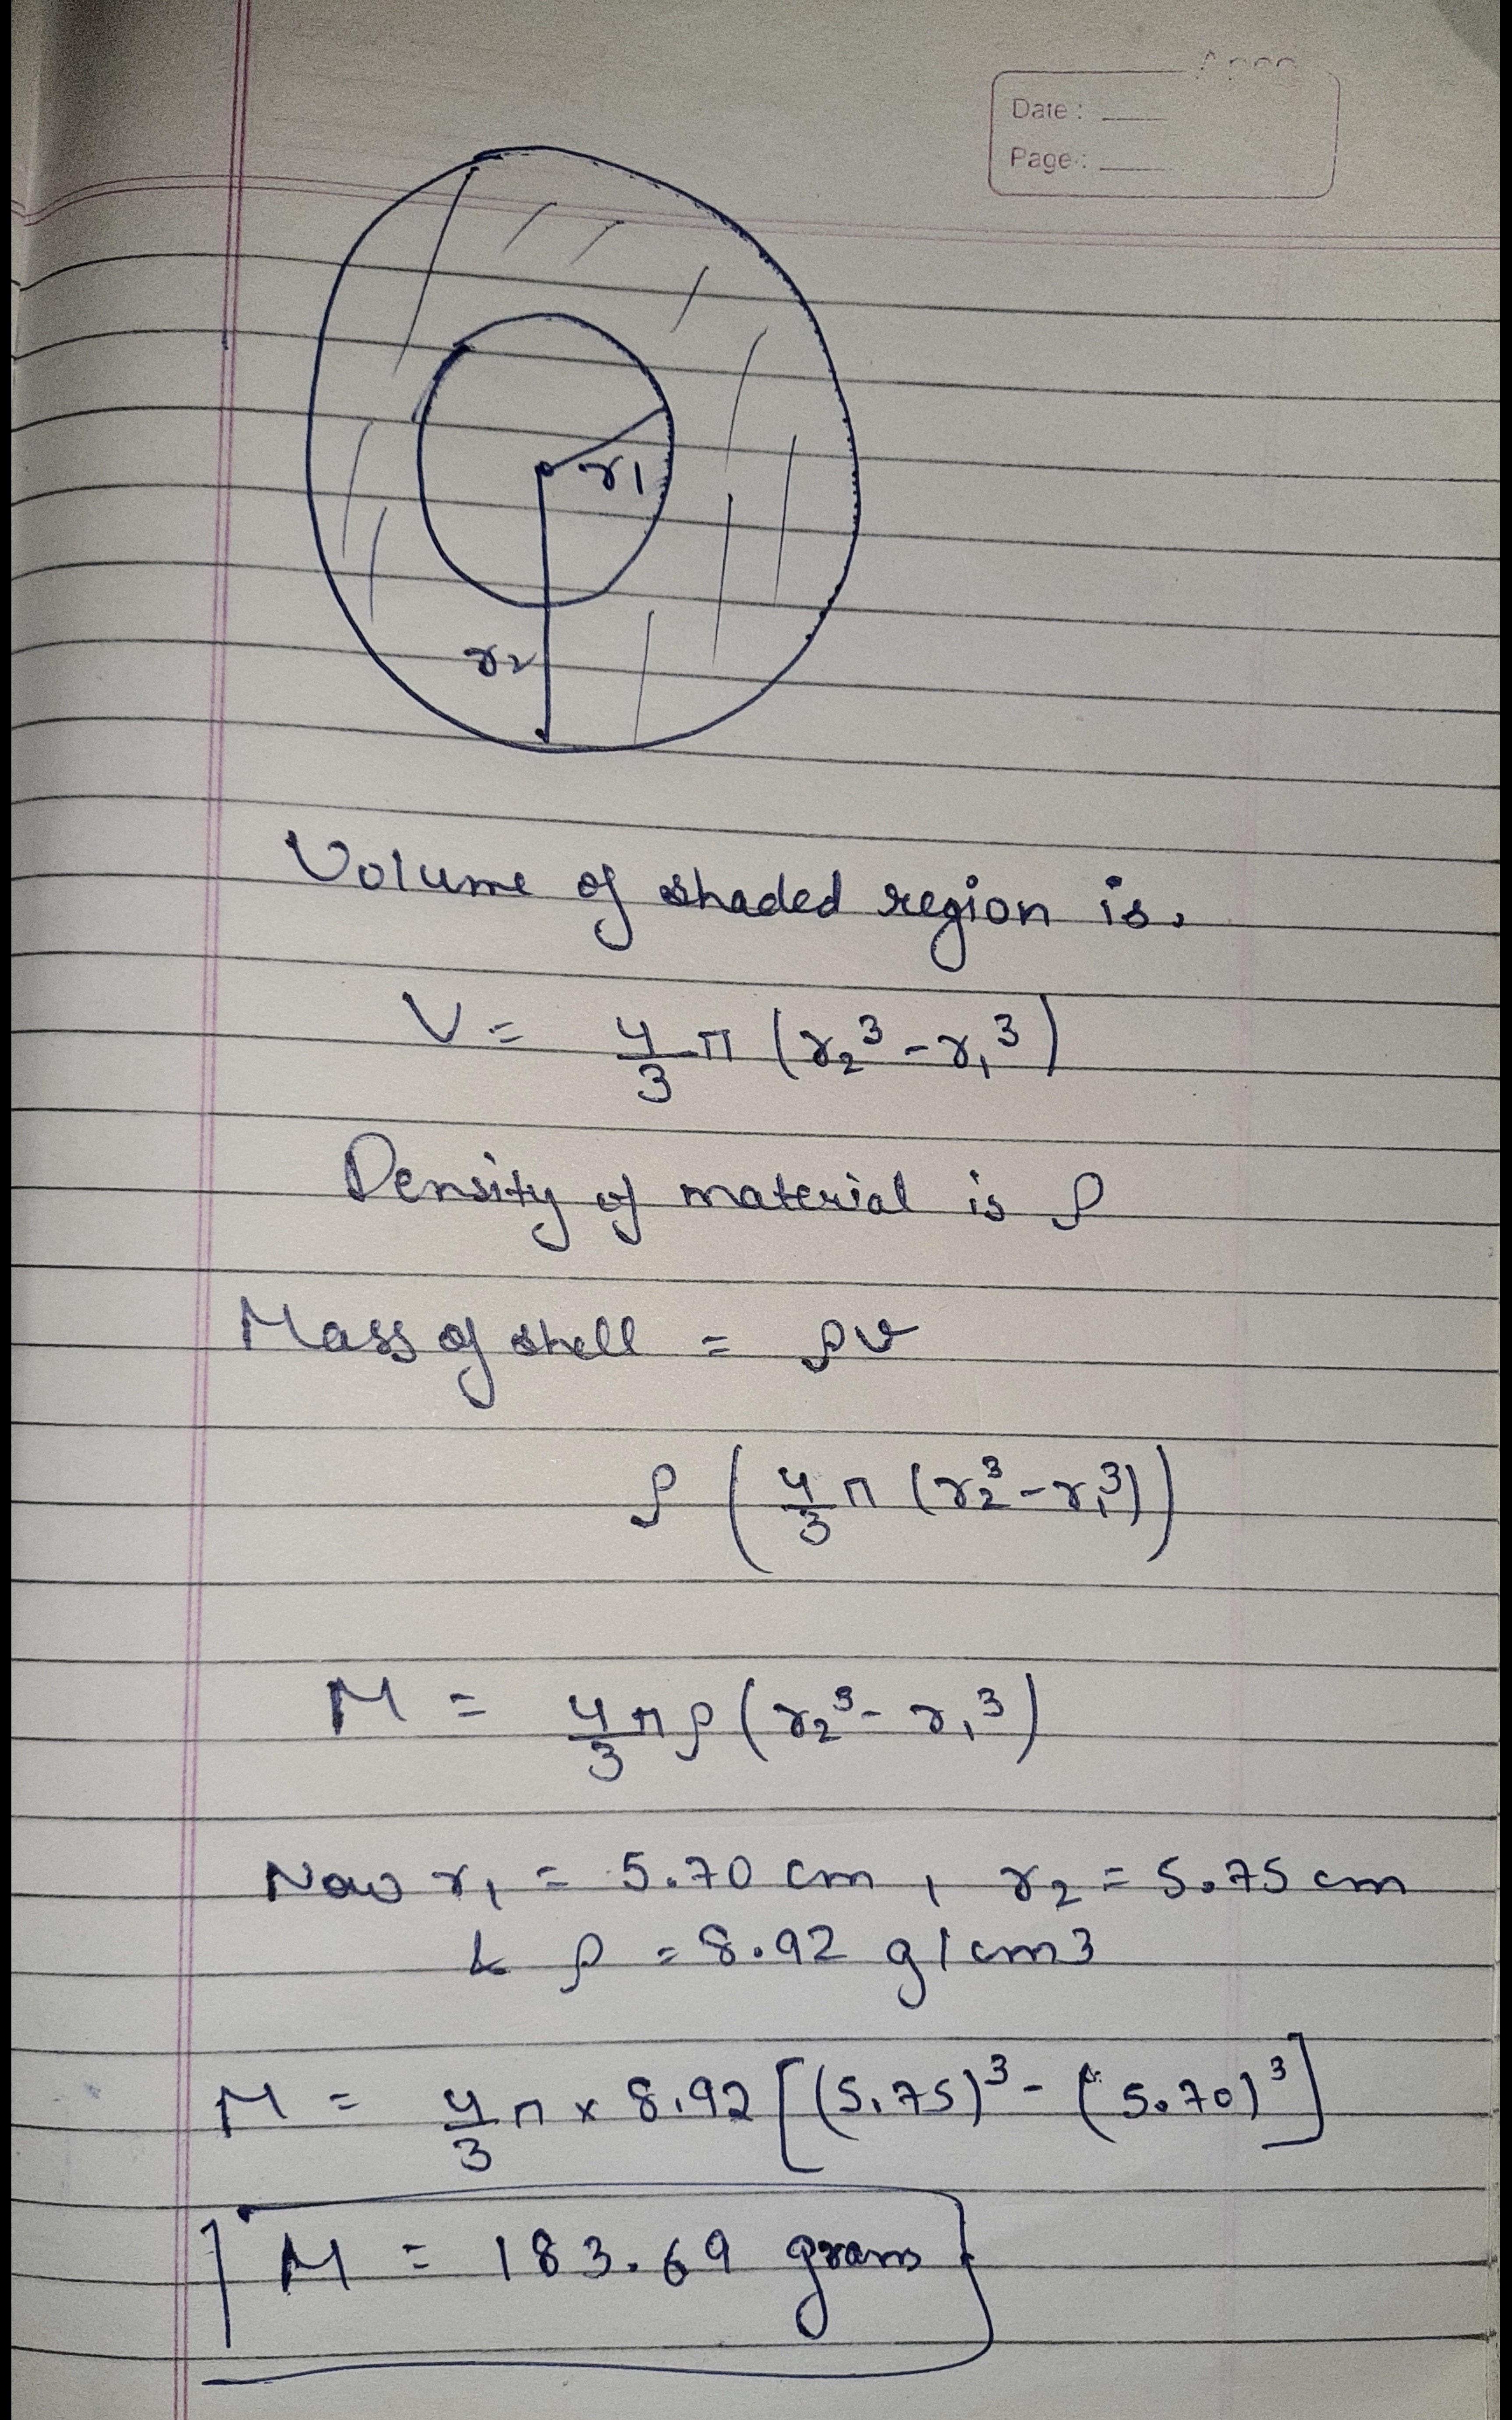 Date :
Page :
r1
r2
Volume of shaded region is.
V = 4/3 π (r₂³ - r₁³)
Density of material is ρ
Mass of shell = ρv
ρ (4/3 π (r₂³ - r₁³))
M = 4/3 πρ (r₂³ - r₁³)
Now r₁ = 5.70 cm , r₂ = 5.75 cm
& ρ = 8.92 g/cm3
M = 4/3 π x 8.92 [(5.75)³ - (5.70)³]
M = 183.69 grams